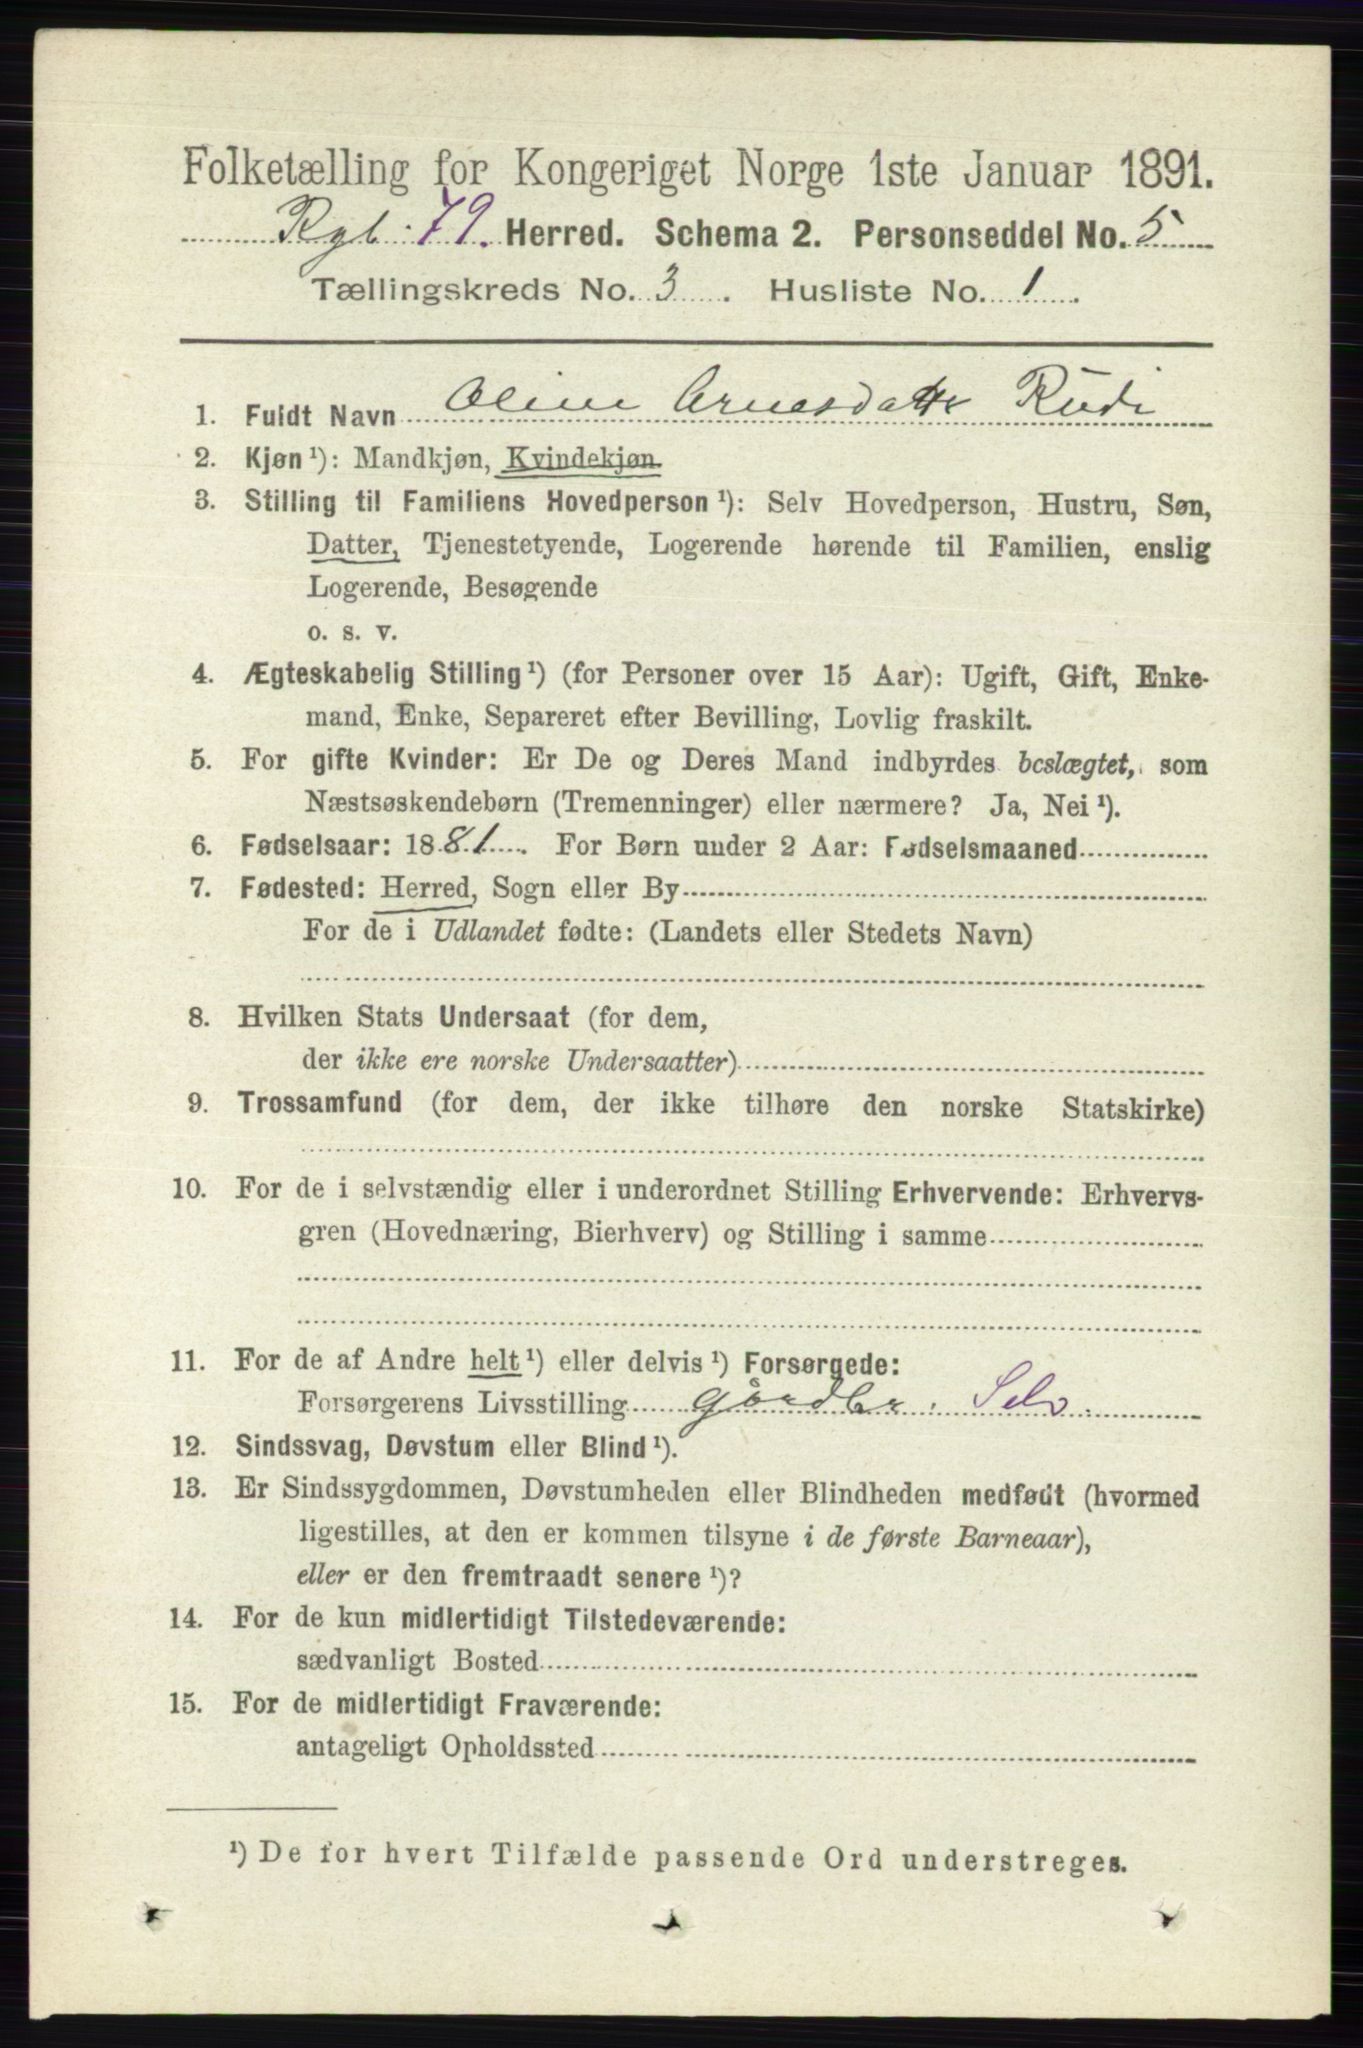 Folketælling for Kongeriget Norge 1ste Januar 1891.
79. Herred. Schema 2. Personseddel No. 5
Tællingskreds No. 3. Husliste No. 1.
1. Fuldt Navn Oline Arnesdatter Rudi
2. Kjøn ¹): Mandkjøn, Kvindekjøn.
3. Stilling til Familiens Hovedperson ¹): Selv Hovedperson, Hustru, Søn,
Datter, Tjenestetyende, Logerende hørende til Familien, enslig
Logerende, Besøgende
o. s. v.
4. Ægteskabelig Stilling ¹) (for Personer over 15 Aar): Ugift, Gift, Enke-
mand, Enke, Separeret efter Bevilling, Lovlig fraskilt.
5. For gifte Kvinder: Er De og Deres Mand indbyrdes beslægtet, som
Næstsøskendebørn (Tremenninger) eller nærmere? Ja, Nei ¹).
6. Fødselsaar: 1881. For Børn under 2 Aar: Fødselsmaaned
7. Fødested: Herred, Sogn eller By
For de i Udlandet fødte: (Landets eller Stedets Navn)
8. Hvilken Stats Undersaat (for dem,
der ikke ere norske Undersaatter)
9. Trossamfund (for dem, der ikke tilhøre den norske Statskirke)
10. For de i selvstændig eller i underordnet Stilling Erhvervende: Erhvervs-
gren (Hovednæring, Bierhverv) og Stilling i samme
11. For de af Andre helt ¹) eller delvis ¹) Forsørgede:
Forsørgerens Livsstilling Gårdbr. Selv.
12. Sindssvag, Døvstum eller Blind ¹).
13. Er Sindssygdommen, Døvstumheden eller Blindheden medfødt (hvormed
ligestilles, at den er kommen tilsyne i de første Barneaar),
eller er den fremtraadt senere ¹)?
14. For de kun midlertidigt Tilstedeværende:
sædvanligt Bosted
15. For de midlertidigt Fraværende:
antageligt Opholdssted
¹) De for hvert Tilfælde passende Ord understreges.